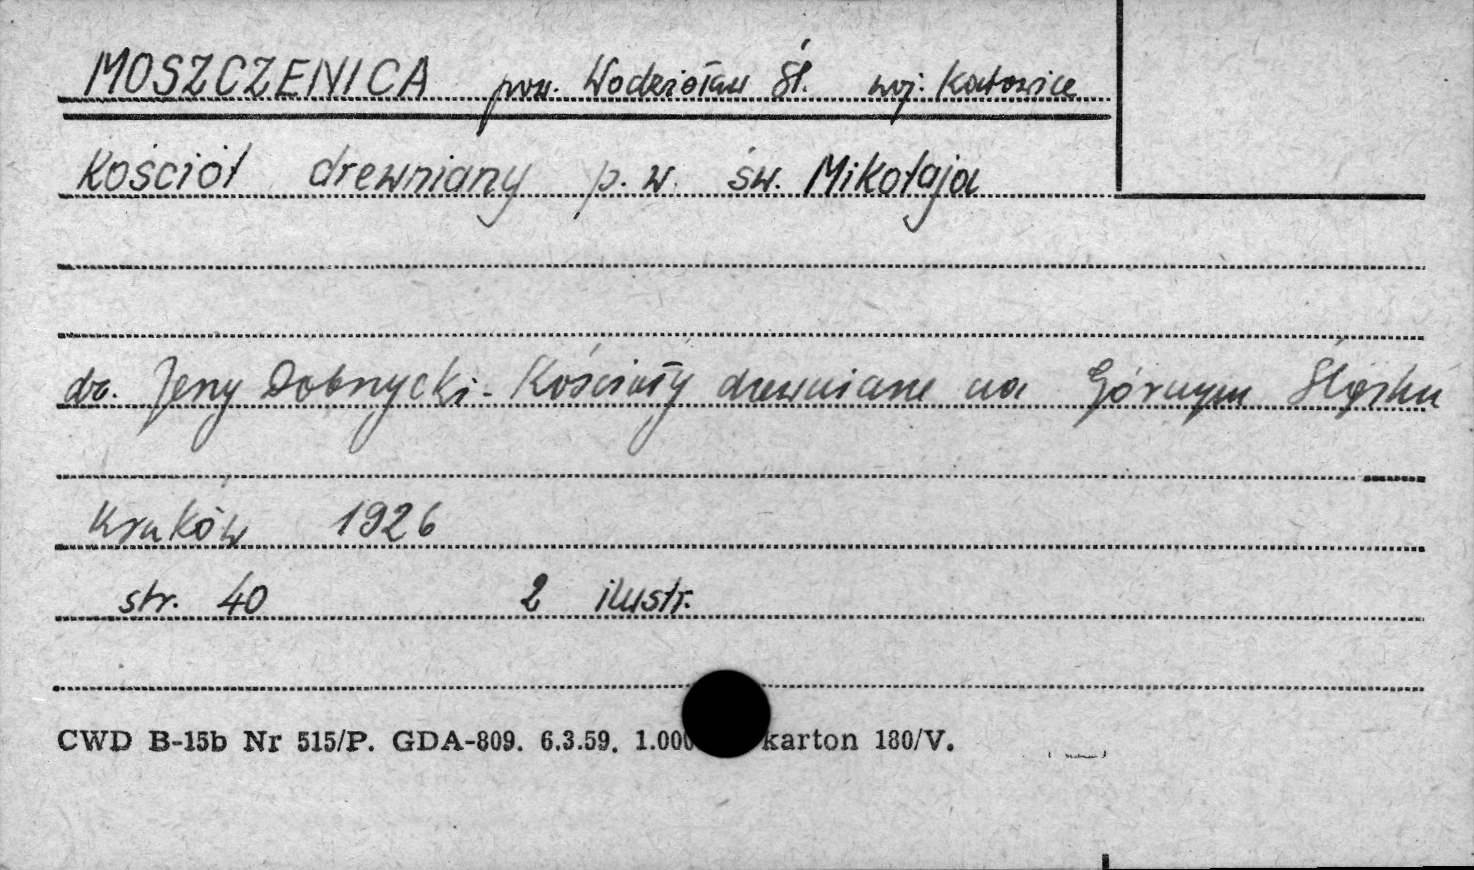 MOSZCZENICA pow. Wodzisław Śl. woj. Katowice
Kościół drewniany p.w. św. Mikołaja
dr. Jerzy Dobrzycki - Kościoły drewniane na Górnym Śląsku
Kraków 1926
str. 40 2 ilustr.
CWD B-15b Nr 515/P. GDA-809. 6.3.59. 1.000 karton 180/V.